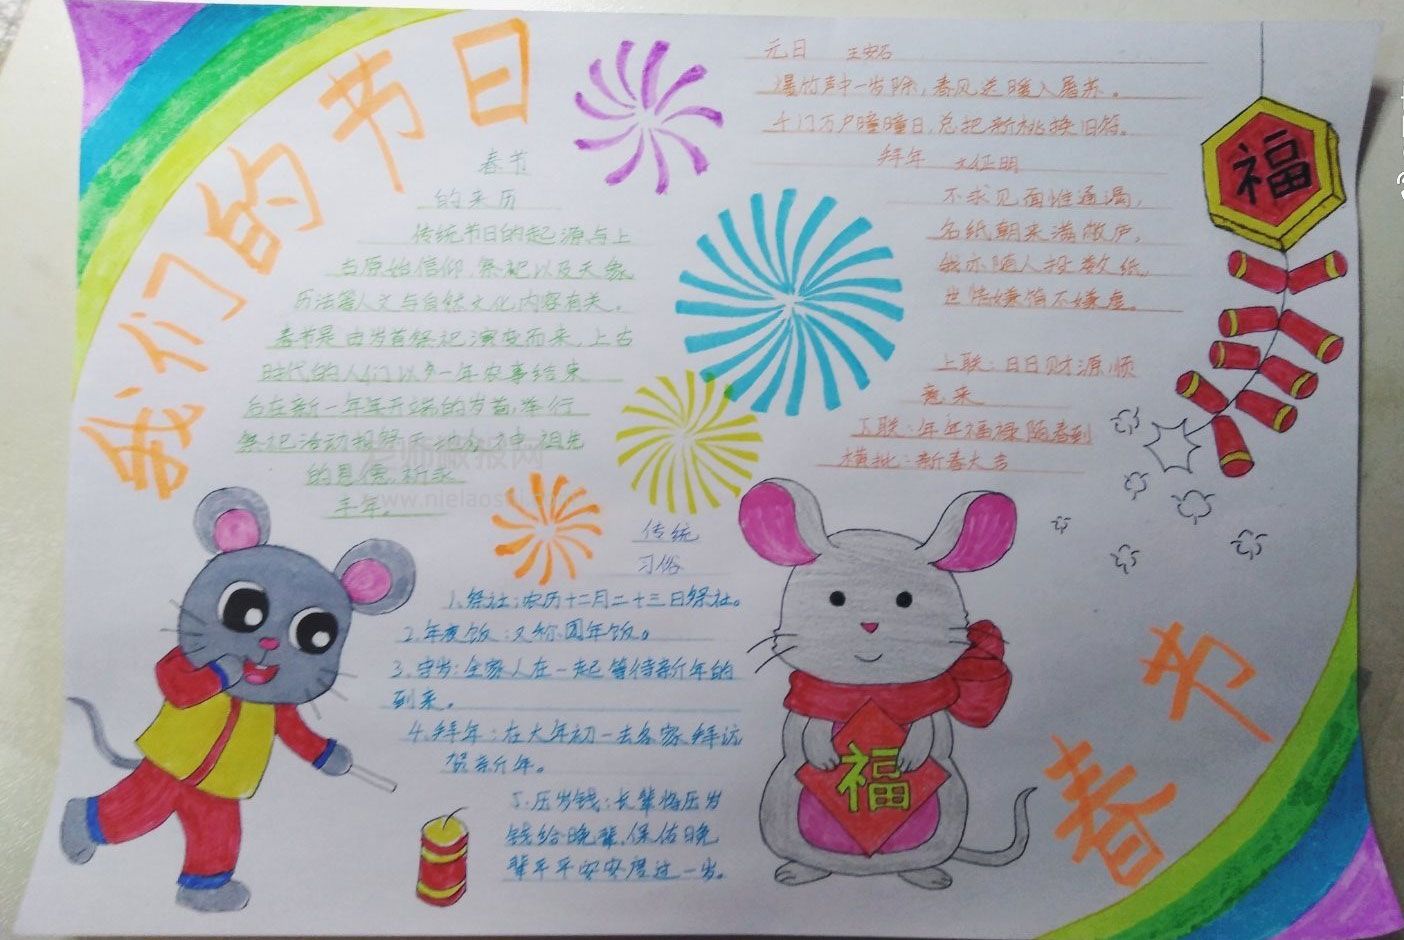 我们的节日
春节
的来历
传统节日的起源与上
古原始信仰、祭祀以及天象
历法等人文与自然文化内容有关。
春节是由岁首祭祀演变而来，上古
时代的人们以为一年农事结束
后在新一年年开端的岁首，举行
祭祀活动报祭天地众神、祖先
的恩德，祈求
丰年。
元日 王安石
爆竹声中一岁除，春风送暖入屠苏。
千门万户曈曈日，总把新桃换旧符。
拜年 文征明
不求见面惟通谒，
名纸朝来满敝庐。
我亦随人投数纸，
世情嫌简不嫌虚。
上联：日日财源顺
意来
下联：年年福禄随春到
横批：新春大吉
福
传统
习俗
1、祭社：农历十二月二十三日祭社。
2、年夜饭：又称团年饭。
3、守岁：全家人在一起等待新年的
到来。
4、拜年：在大年初一去各家拜访
贺新年。
5、压岁钱：长辈将压岁
钱给晚辈，保佑晚
辈平平安安度过一岁。
福
春节
www.nielaoshi